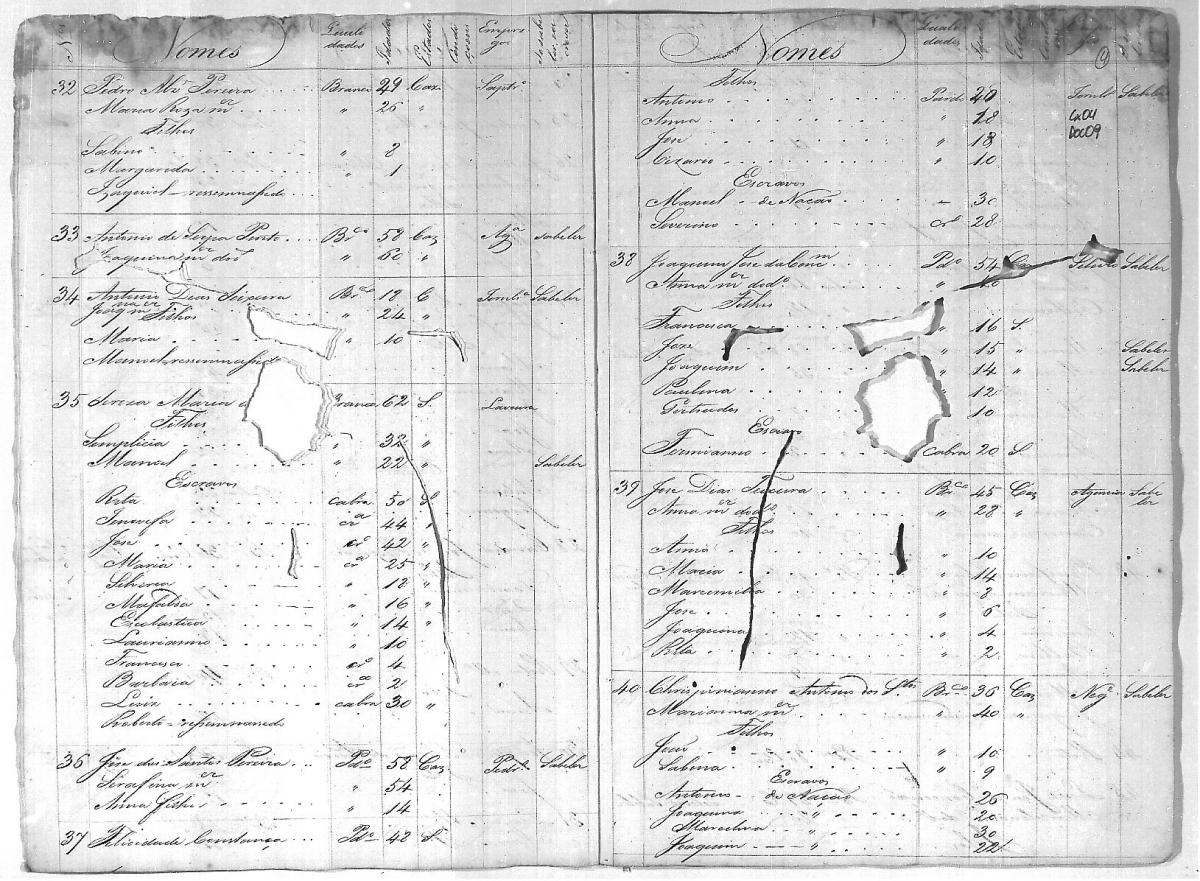 Nos Nomes Quali dades Idades Estados Condi çoens Empre gos
32 Pedro Miz Pereira Branco 29 Caz.
Maria Roza mer " 26 "
Filhos
Sabino " 2
Margarida " 1
Izaquiel - ressemnascido
33 Antonio de Souza Pinto Brco 58 Caz Aga Sabeler
Joaquina mer do do " 60 "
34 Antonio Dias Teixeira Brco C Sabeler
Joaqna mer " 24 "
Filhos
Maria " 10
Manoel - ressemnascido
35 Tereza Maria Branca 62 S. Lavoura
Filhos
Semplicia " 32 "
Manoel " 22 " Sabeler
Escravos
Rita cabra 50 S
Jenovefa cra 44 "
Jose cro 42 "
Maria cra 25 "
Silveria " "
Mafalda " 16 "
Escolastica " 14 "
Laurianno " 10
Francisco cro 4
Barbara cra 2
Luiz cabra 30 "
Roberto - ressemnascido
36 Jose dos Santos Pereira Pdo 58 Caz Pedro Sabeler
Serafina mer " 54
Anna filha " 14
37 Felicidade Constança Pda 42 S.
Nomes Quali dades 9
Filhos
Antonio Pardo 20 Sabeler
Anna " 18 Cx04
Jose " 18 Doc09
Cizario " 10
Escravos
Manoel - de Nação - 30
Severino cro 28
38 Joaquim Jose da Concm Pdo 54 Caz Sabeler
Anna mer do do "
Filhos
Francisca " 16 S.
Joze " 15 " Sabeler
Joaquim " 14 " Sabeler
Paulina " 12
Gertrudes " 10
Escravo
Fermianno cabra 20 S
39 Jose Dias Teixeira Brco 45 Caz Agencia Sabe ler
Anna mer do do " 28 "
Filhos
Anna " 10
Maria " 14
Manomilia " 8
Jose " 6
Joaquina " 4
Rita " 2
40 Chrispinianno Antonio dos Stos Brco 36 Caz Nego Sabeler
Marianna mer " 40 "
Filhos
João " 10
Sabina " 9
Escravos
Antonio - de Nação 26
Joaquina " 20
Marcelina " 30
Joaquim " 22